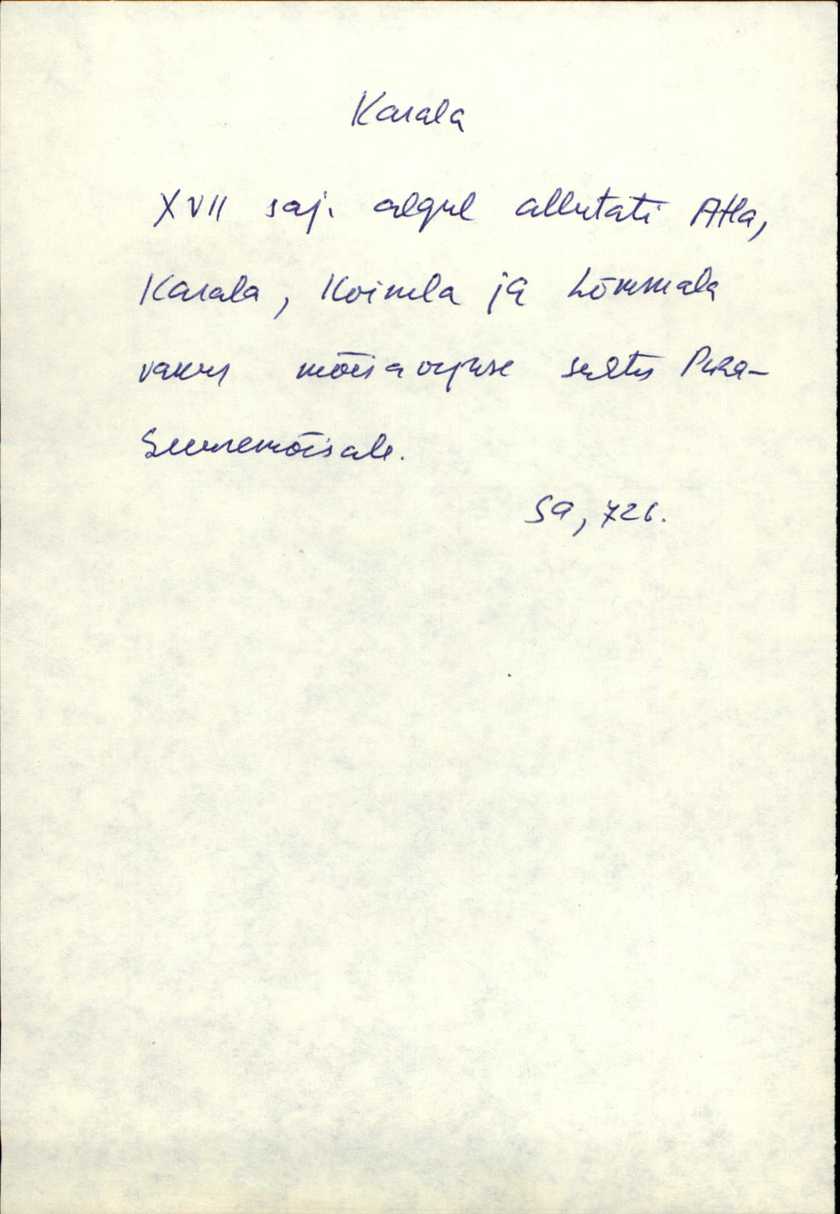 Karala
XVII saj. algul allutati Atla,
Karala, Koimla ja Lõmmala
vakus mõisavijuse suhtes Piha-
Suuremõisale.
SA, 726.